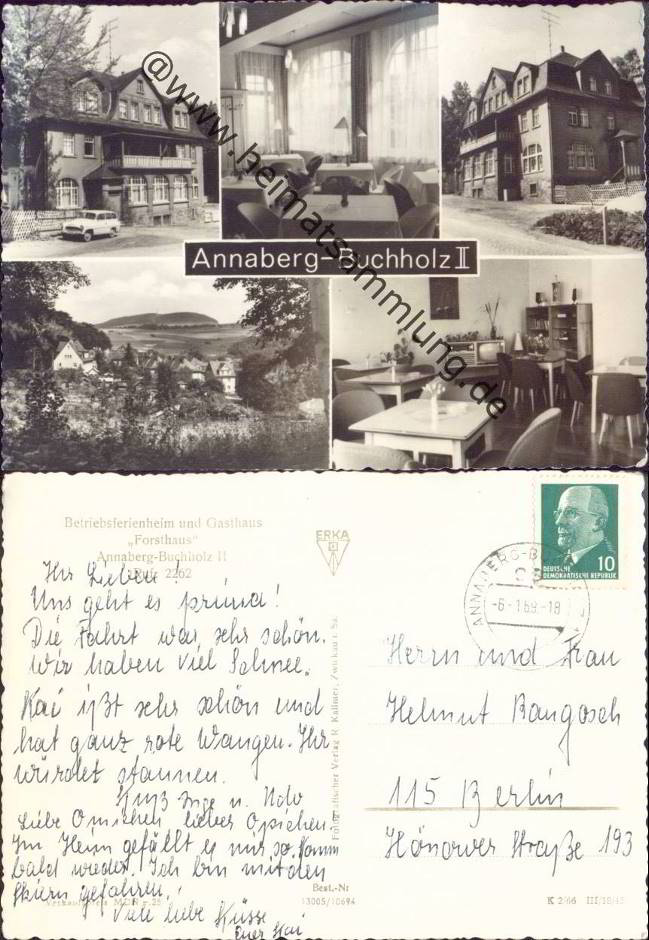 @www.heimatsammlung.de
Annaberg-Buchholz II
Betriebsferienheim und Gasthaus
„Forsthaus"
Annaberg-Buchholz II
Ruf: 2262
ERKA
10
DEUTSCHE
DEMOKRATISCHE REPUBLIK
ANNABERG-B
-6.-1.69.-18
Ihr Lieben!
Uns geht es prima!
Die Fahrt war sehr schön.
Wir haben viel Schnee.
Kai ißt sehr schön und
hat ganz rote Wangen. Ihr
würdet staunen.
Gruß Inge u. Udo
Liebe Omichen, lieber Opichen.
Im Heim gefällt es mir so. Komm
bald wieder. Ich bin mit den
Skiern gefahren!
Viele liebe Küsse
Euer Kai
Herrn und Frau
Helmut Bangosch
115 Berlin
Hönower Straße 193
Fotografischer Verlag R. Kallmer, Zwickau i. Sa.
Best.-Nr
13005/10694
Verkaufspreis MDN -.25
K 2/66 III/18/45